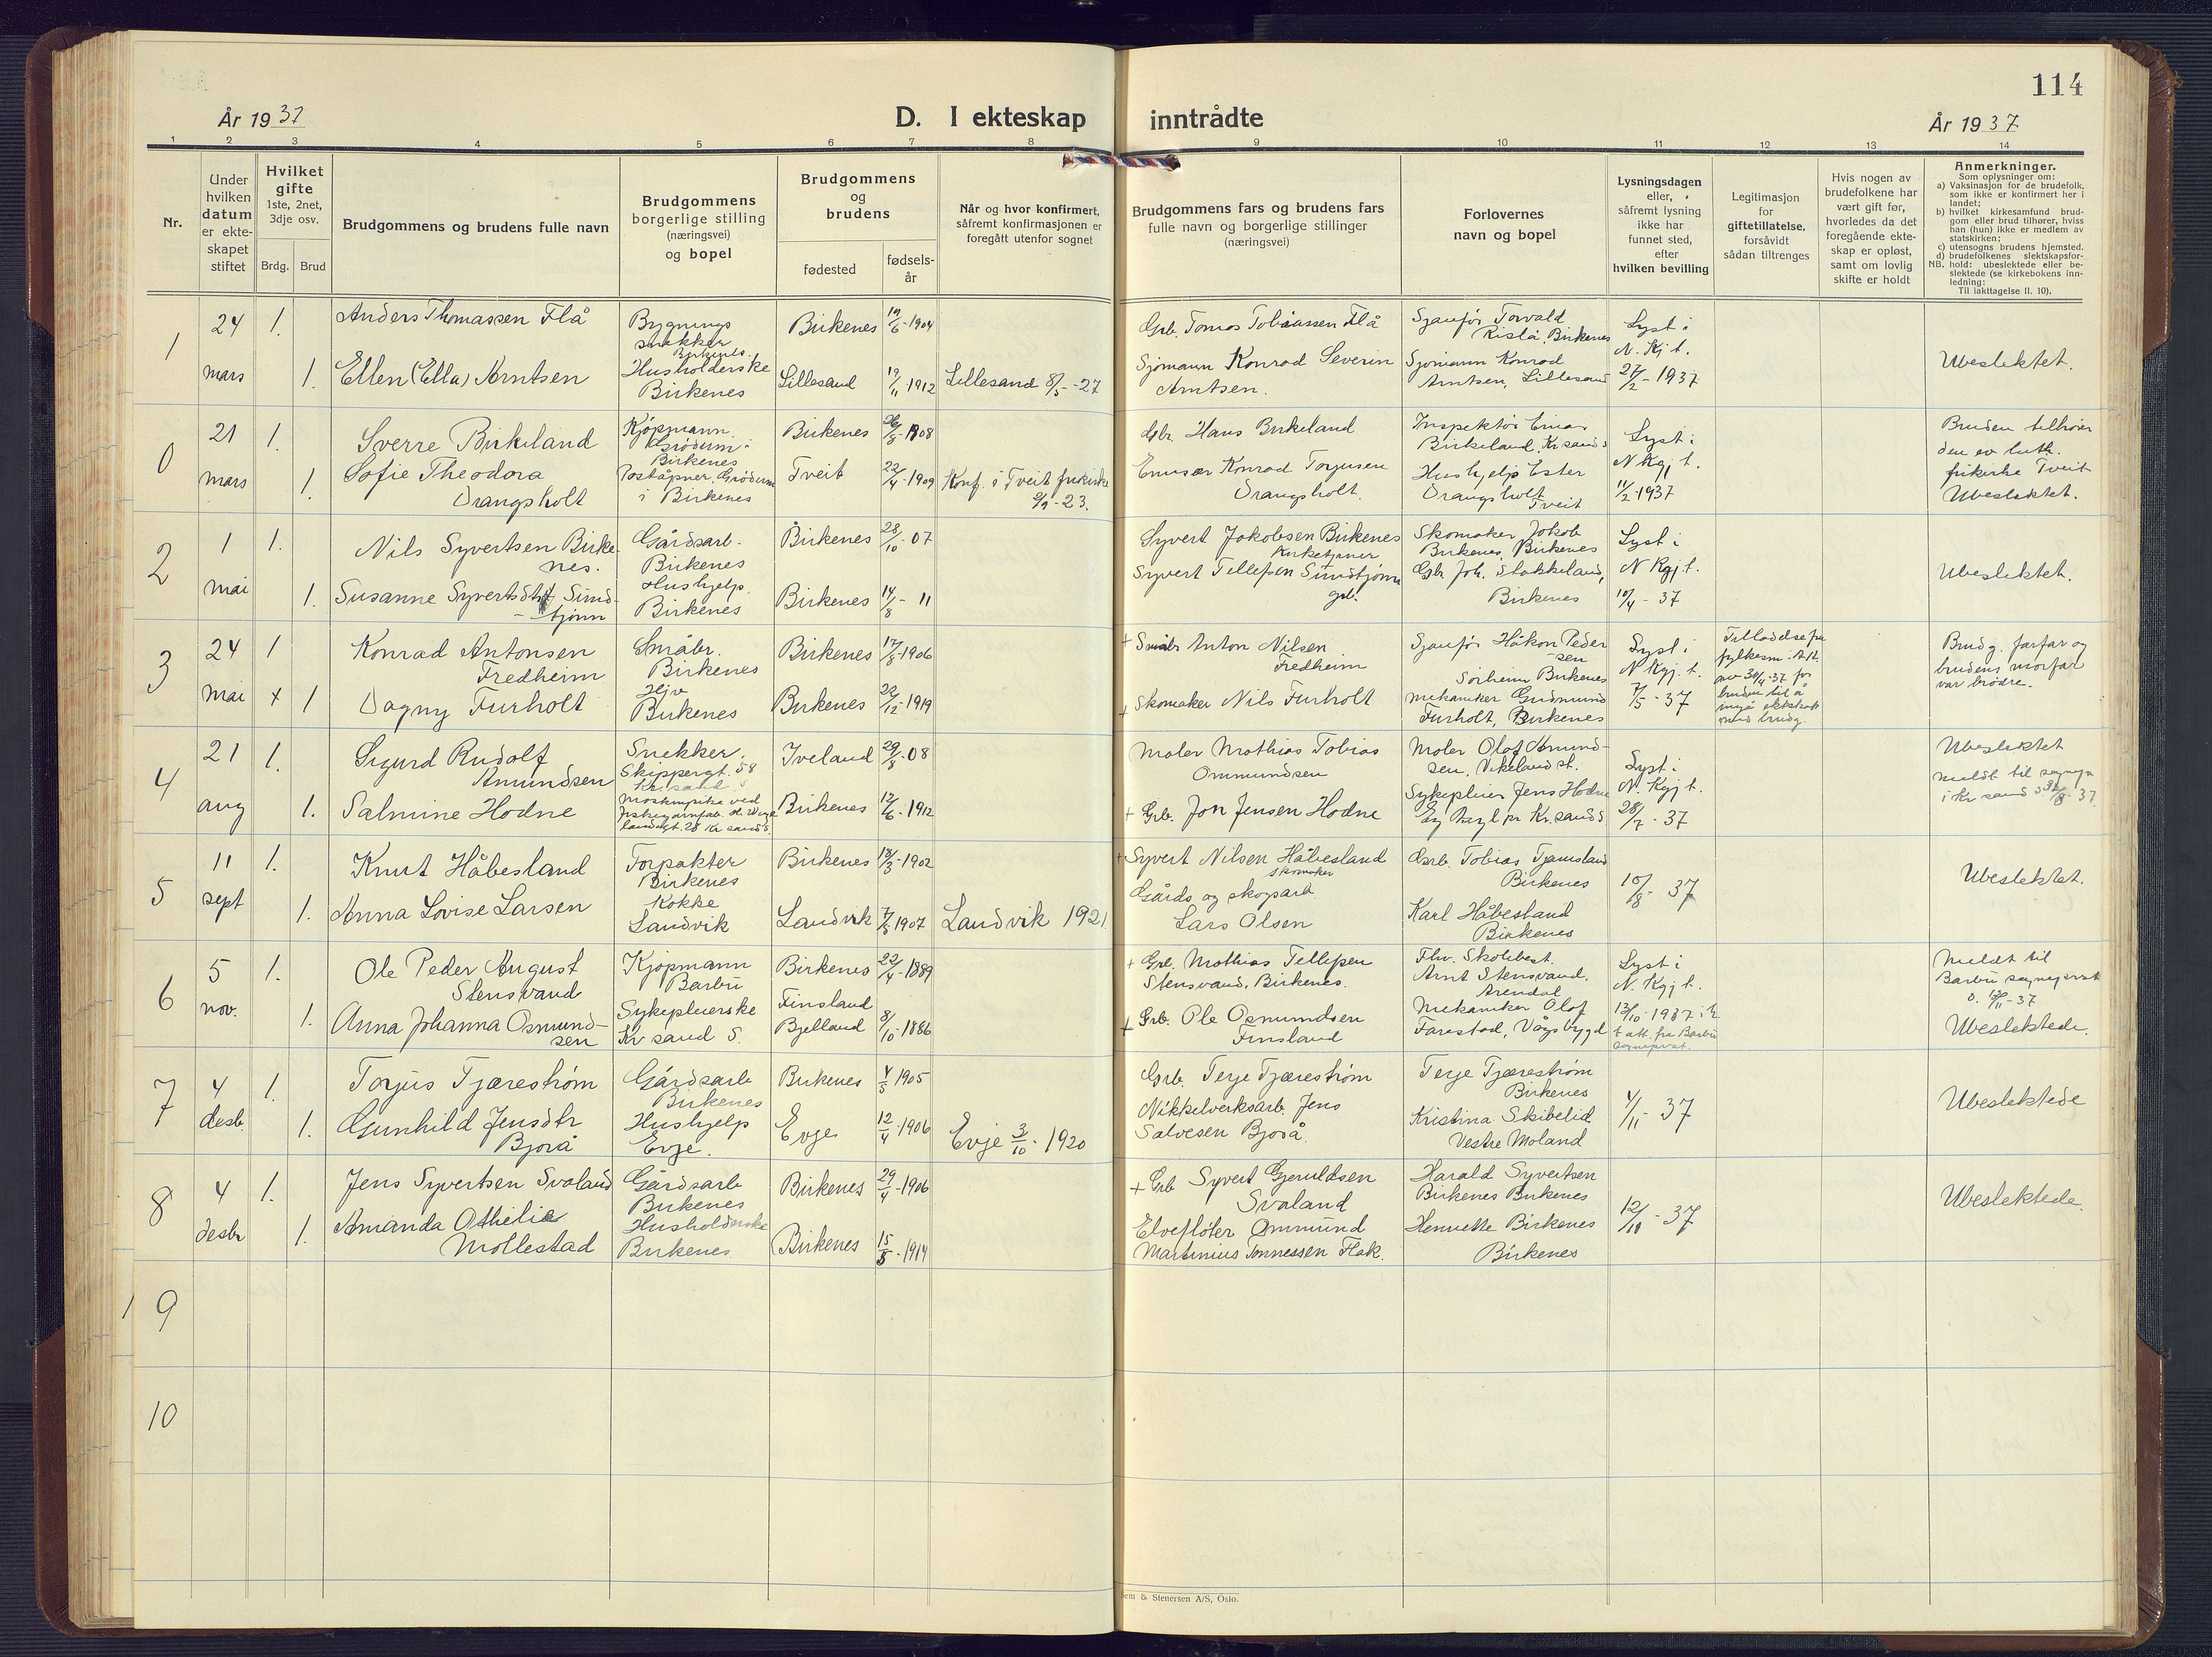 114
År 1937
D. I ekteskap inntrådte
År 1937
1 2 3 4 5 6 7 8 9 10 11 12 13 14
Nr.
Under hvilken datum er ekteskapet stiftet
Hvilket gifte 1ste, 2net, 3dje osv.
Brdg. Brud
Brudgommens og brudens fulle navn
Brudgommens borgerlige stilling (næringsvei) og bopel
Brudgommens og brudens
fødested
fødselsår
Når og hvor konfirmert, såfremt konfirmasjonen er foregått utenfor sognet
Brudgommens fars og brudens fars fulle navn og borgerlige stillinger (næringsvei)
Forlovernes navn og bopel
Lysningsdagen eller, såfremt lysning ikke har funnet sted, efter hvilken bevilling
Legitimasjon for giftetillatelse, forsåvidt sådan tiltrenges
Hvis nogen av brudefolkene har vært gift før, hvorledes da det foregående ekteskap er opløst, samt om lovlig skifte er holdt
Anmerkninger.
Som oplysninger om:
a) Vaksinasjon for de brudefolk, som ikke er konfirmert her i landet;
b) hvilket kirkesamfund brudgom eller brud tilhører, hviss han (hun) ikke er medlem av statskirken;
c) utensogns brudens hjemsted.
d) brudefolkenes slektskapsforhold: ubeslektede eller beslektede (se kirkebokens innledning:
NB.
Til iakttagelse II. 10).
1
24 mars
1. Anders Thomassen Flå
Bygnings snekker Birkenes
Birkenes 19/6-1904
Grb. Tomas Tobiassen Flå
Sjaufør Torvald Rislå, Birkenes
Lyst i N. Kj t. 27/2-1937
1. Ellen (Ella) Arntsen
Husholderske Birkenes
Lillesand 19/11-1912
Lillesand 8/5-27
Sjømann Konrad Severin Arntsen.
Sjømann Konrad Arntsen, Lillesand
Ubeslektet.
0
21 mars
1. Sverre Birkeland
Kjøpmann, Grødum i Birkenes
Birkenes 26/8-1908
Gbr. Hans Birkeland
Inspektør Einar Birkeland, Kr.sand S
Lyst i N Kgj t. 11/2-1937
1. Sofie Theodora Drangsholt
Poståpner, Grødum i Birkenes
Tveit 22/4-1909
Konf. i Tveit frikirke 9/9-23.
Konrad Torjusen Drangsholt.
Hushjelp Ester Drangsholt Tveit
Bruden tilhører den ev luth. frikirke Tveit
Ubeslektet.
2
1 mai
1. Nils Syvertsen Birkenes.
Gårdsarb. Birkenes
Birkenes 28/10-07
Syvert Jakobsen Birkenes Kirketjener
Skomaker Jakob Birkenes, Birkenes
Lyst i N Kgj t. 10/4-37
1. Susanne Syvertsdtr Sundtjønn
Hushjelp. Birkenes
Birkenes 14/8-11
Syvert Tellefsen Sundtjønn grb.
Gbr Joh. Stokkeland, Birkenes
Ubeslektet.
3
24 mai
1 Konrad Antonsen Fredheim
Småbr. Birkenes
Birkenes 17/8-1906
+ Småbr Anton Nilsen Fredheim
Sjaufør Håkon Pedersen Sørheim Birkenes
Lyst i N Kgj. t. 7/5-37
Tilladelse fra fylkesm. i A.A. av 30/4-37 for bruden til å ingå ekteskab med brudg.
x 1 Dagny Furholt
Hjv Birkenes
Birkenes 22/12-1919
+ Skomaker Nils Furholt
Mekaniker Gudmund Furholt, Birkenes
Brudg. farfar og brudens morfar var brødre.
4
21 aug
1. Sigurd Rudolf Amundsen
Snekker. Skippergt. 58 Kr.sand S
Iveland 29/8-08
Maler Mathias Tobias Ommundsen
Maler Olaf Amundsen, Vikeland st.
Lyst i N. Kgj t. 28/7-37
1. Salmine Hodne
Birkenes 12/6-1912
+ Grb. Jon Jensen Hodne
Sykepleier Jens Hodne Eg Asyl pr Kr.sand S
Ubeslektet
Meldt til sognepr i Kr sand S 8-37
5
11 sept
1. Knut Håbesland
Forpakter Birkenes
Birkenes 18/3-1902
+ Syvert Nilsen Håbesland skomaker
Grb. Tobias Tjamsland Birkenes
10/8-37
1. Anna Lovise Larsen
Kokke Landvik
Landvik 7/5 1907
Landvik 1921
Gårds og skogsarb Lars Olsen
Karl Håbesland Birkenes
Ubeslektet.
6
5 nov.
1. Ole Peder August Stensvand
Kjøpmann Barbu
Birkenes 22/4-1889
+ Grb. Mathias Tellefsen Stensvand, Birkenes.
Fhv. Skolebest. Arnt Stensvand, Arendal
Lyst i N. Kgj t. 13/10-1937
att. fra Barbu sogneprest.
1. Anna Johanna Osmundsen
Sykepleierske Kr sand S.
Finsland Bjelland 8/10-1886
+ Grb. Ole Osmundsen Finsland
Mekaniker Olaf Farestad, Vågsbygd
Meldt til Barbu sogneprest
Ubeslektede.
7
4 desb.
1. Torjus Tjærestrøm
Gårdsarb Birkenes
Birkenes 4/5 1905
Grb. Terje Tjærestrøm
Terje Tjærestrøm Birkenes
4/11-37
1. Gunhild Jensdtr Bjorå
Hushjelp Evje.
Evje 12/4-1906
Evje 3/10-1920
Nikkelverksarb. Jens Salvesen Bjorå.
Kristina Skibelid Vestre Moland
Ubeslektede
8
4 desbr
1. Jens Syvertsen Svaland
Gårdsarb Birkenes
Birkenes 29/4-1906
+ Grb Syvert Gjeruldsen Svaland
Harald Syvertsen Birkenes Birkenes
12/11-37
1. Amanda Othelie Mollestad
Husholderske Birkenes.
Birkenes 15/8-1914
Elvefløter Ommund Martinius Tønnessen Flak.
Henriette Birkenes Birkenes
Ubeslektede.
9
10
Sem & Stenersen A/S, Oslo.